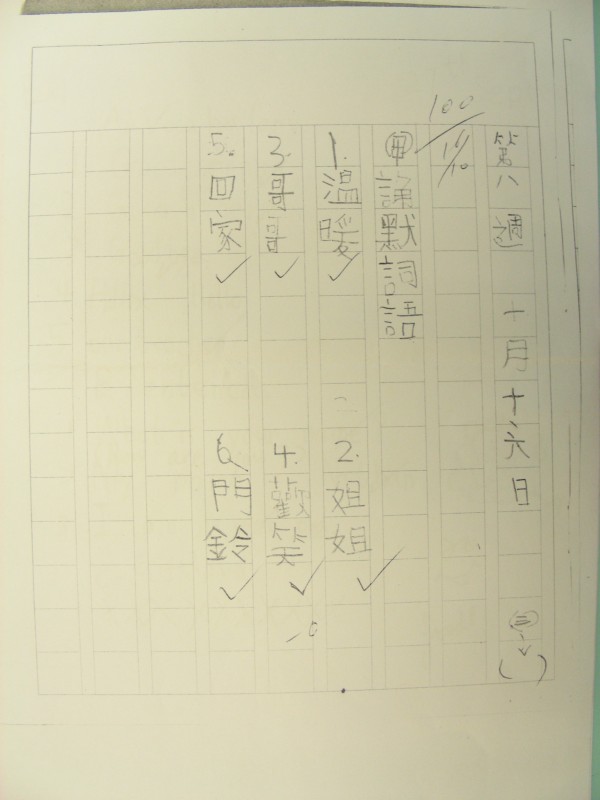 第八週 十月十六日 (三)
100
11/10
甲 謄默詞語
1. 溫暖 2. 姐姐
3. 哥哥 4. 歡笑
5. 回家 6. 門鈴